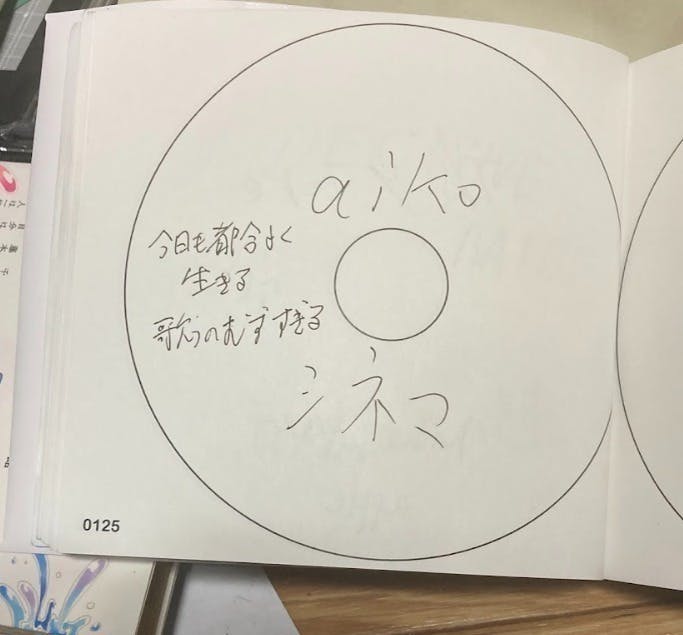 aiko
今日も都合よく
生きる
歌うのむずすぎる
シネマ
0125